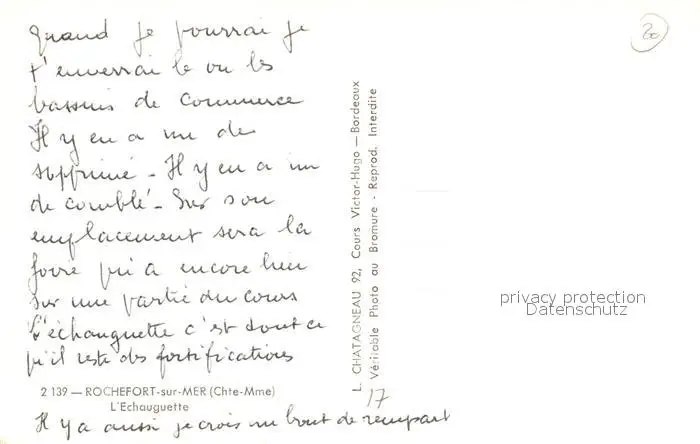 Quand je pourrai je
t'enverrai le ou les
bassins de commerce
Il y en a un de
supprimé - Il y en a un
de comblé - Sur son
emplacement sera la
foire qui a encore lieu
sur une partie du cours
L'échauguette c'est tout ce
qu'il reste des fortifications
2 139 — ROCHEFORT-sur-MER (Chte-Mme)
L'Echauguette
Il y a aussi je crois un bout de rempart
L. CHATAGNEAU 92, Cours Victor-Hugo — Bordeaux
Véritable Photo au Bromure - Reprod. Interdite
17
20
privacy protection
Datenschutz